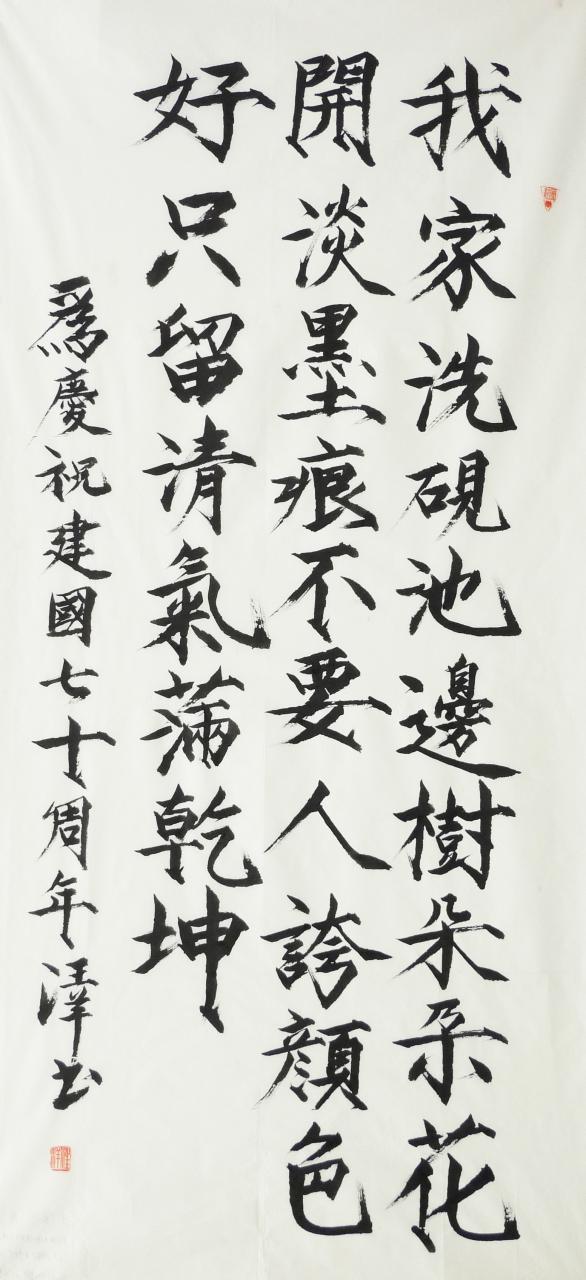 我家洗硯池邊樹朵朵花
開淡墨痕不要人誇顏色
好只留清氣滿乾坤
爲慶祝建國七十周年澤书